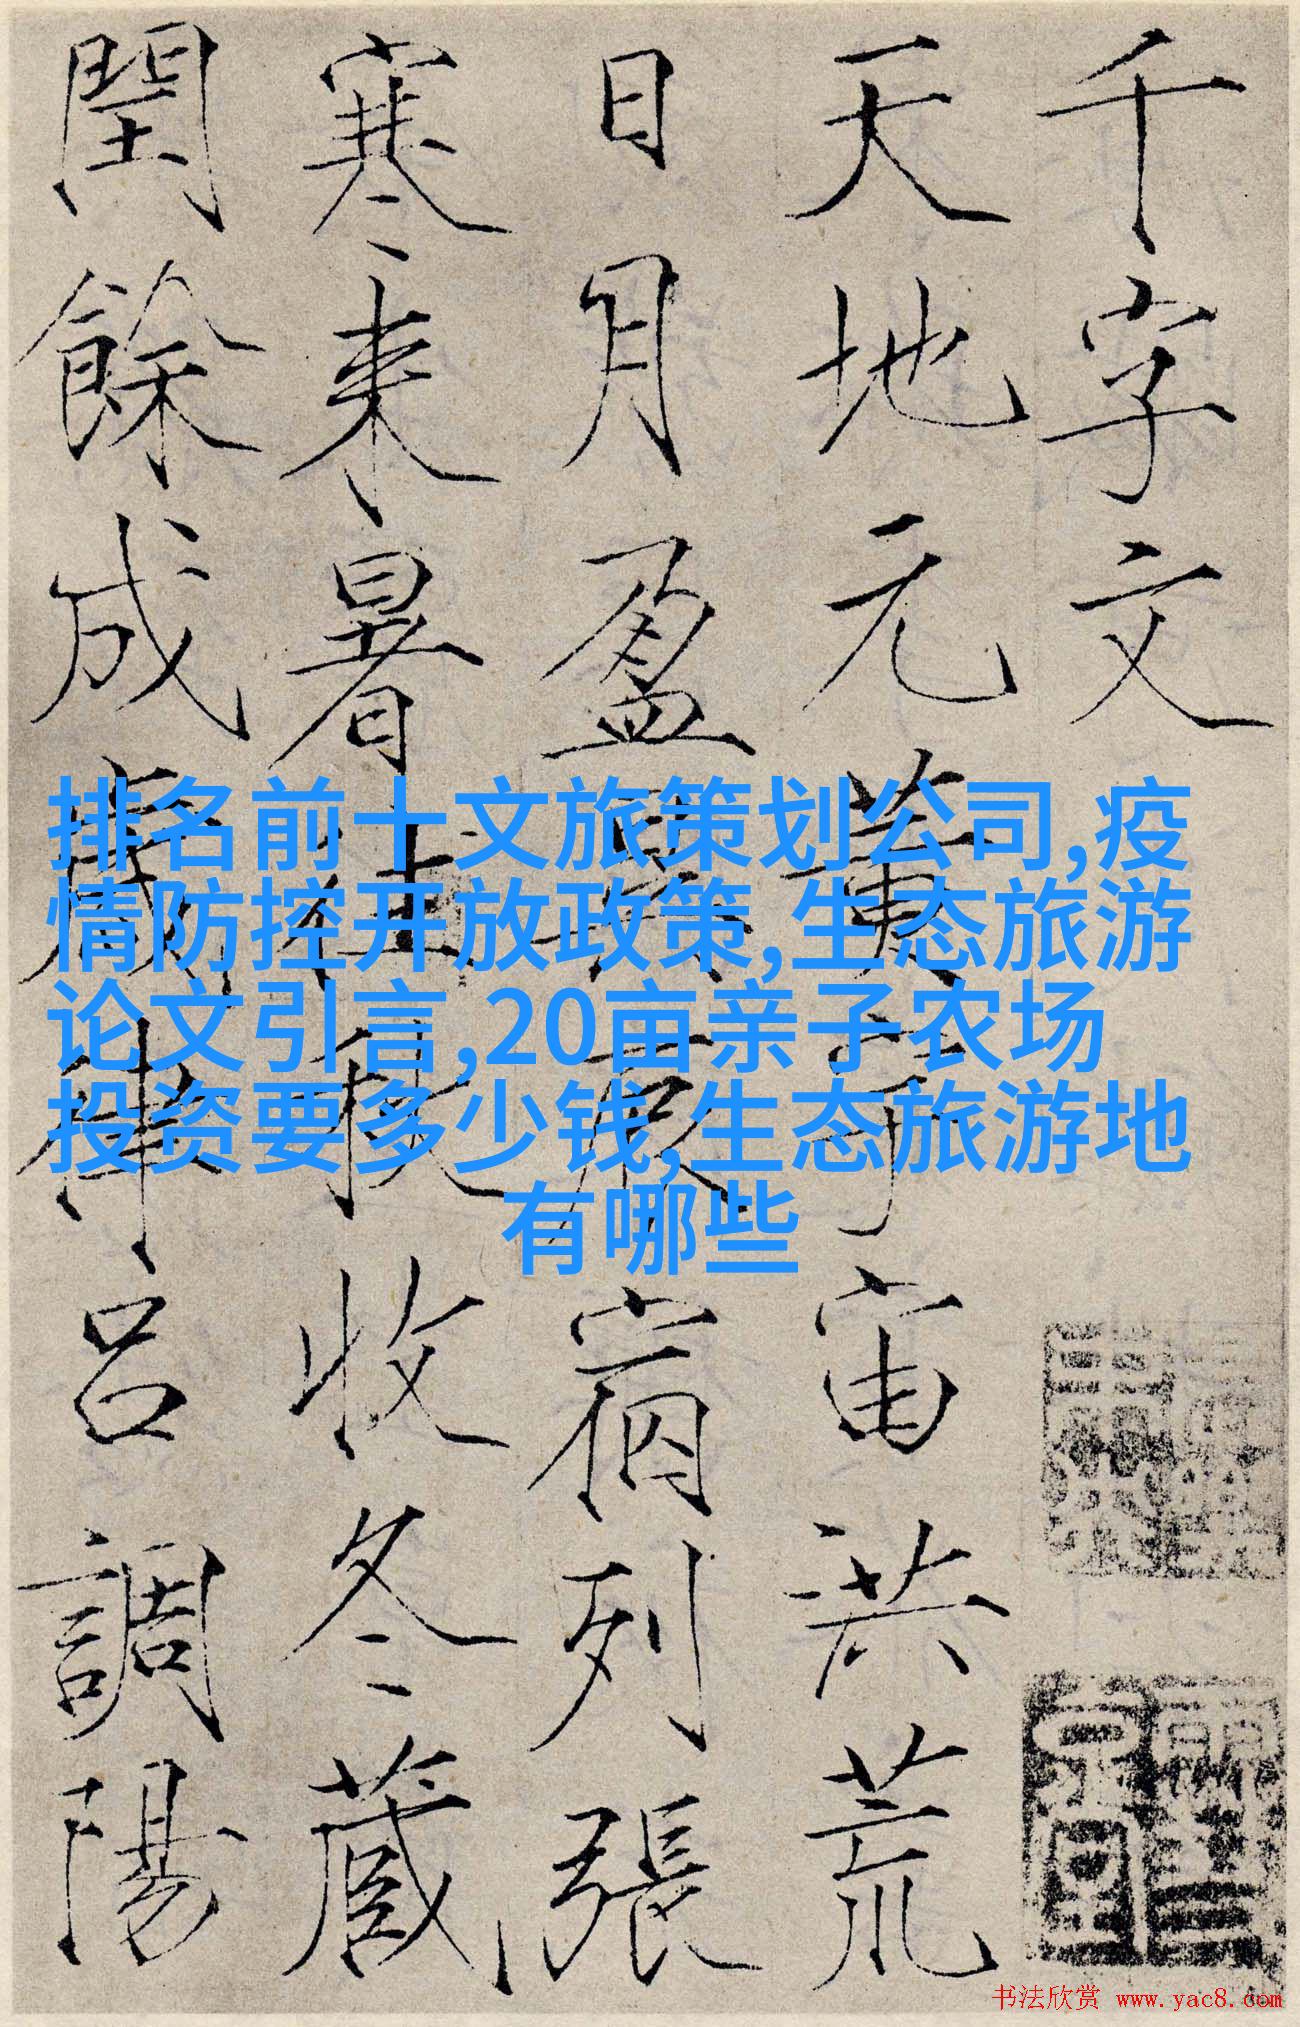 千字文
天地元黄宇宙洪荒
日月盈昃辰宿列張
寒来暑往秋收冬藏
閏餘成歲律吕調陽
排名前十文旅策划公司,疫
情防控开放政策,生态旅游
论文引言,20亩亲子农场
投资要多少钱,生态旅游地
有哪些
书法欣赏 www.yac8.com